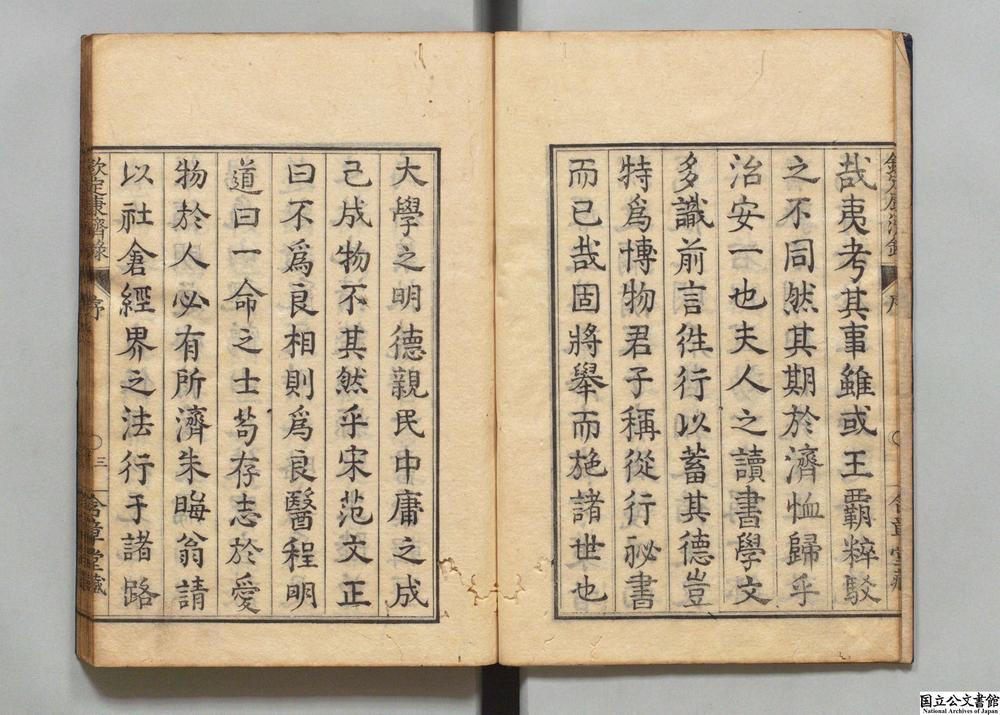 哉夷考其事雖或王霸粹駁
之不同然其期於濟恤歸乎
治安一也夫人之讀書學文
多識前言徃行以蓄其德豈
特爲博物君子稱從行祕書
而已哉固將舉而施諸世也
大學之明德親民中庸之成
己成物不其然乎宋范文正
曰不爲良相則爲良醫程明
道曰一命之士苟存志於愛
物於人必有所濟朱晦翁請
以社倉經界之法行于諸路
欽定康濟錄
序
三
含章堂藏
国立公文書館
National Archives of Japan